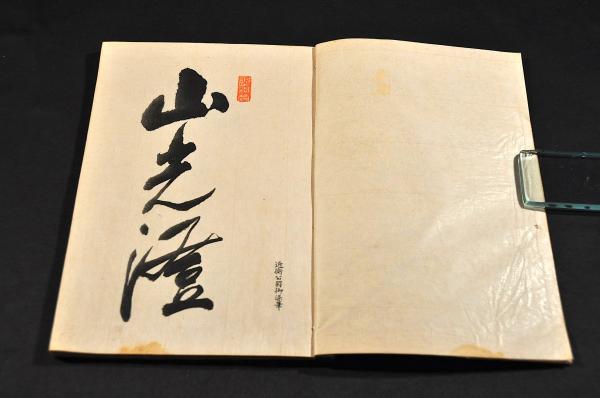 山光澄
近衛公爵御染筆